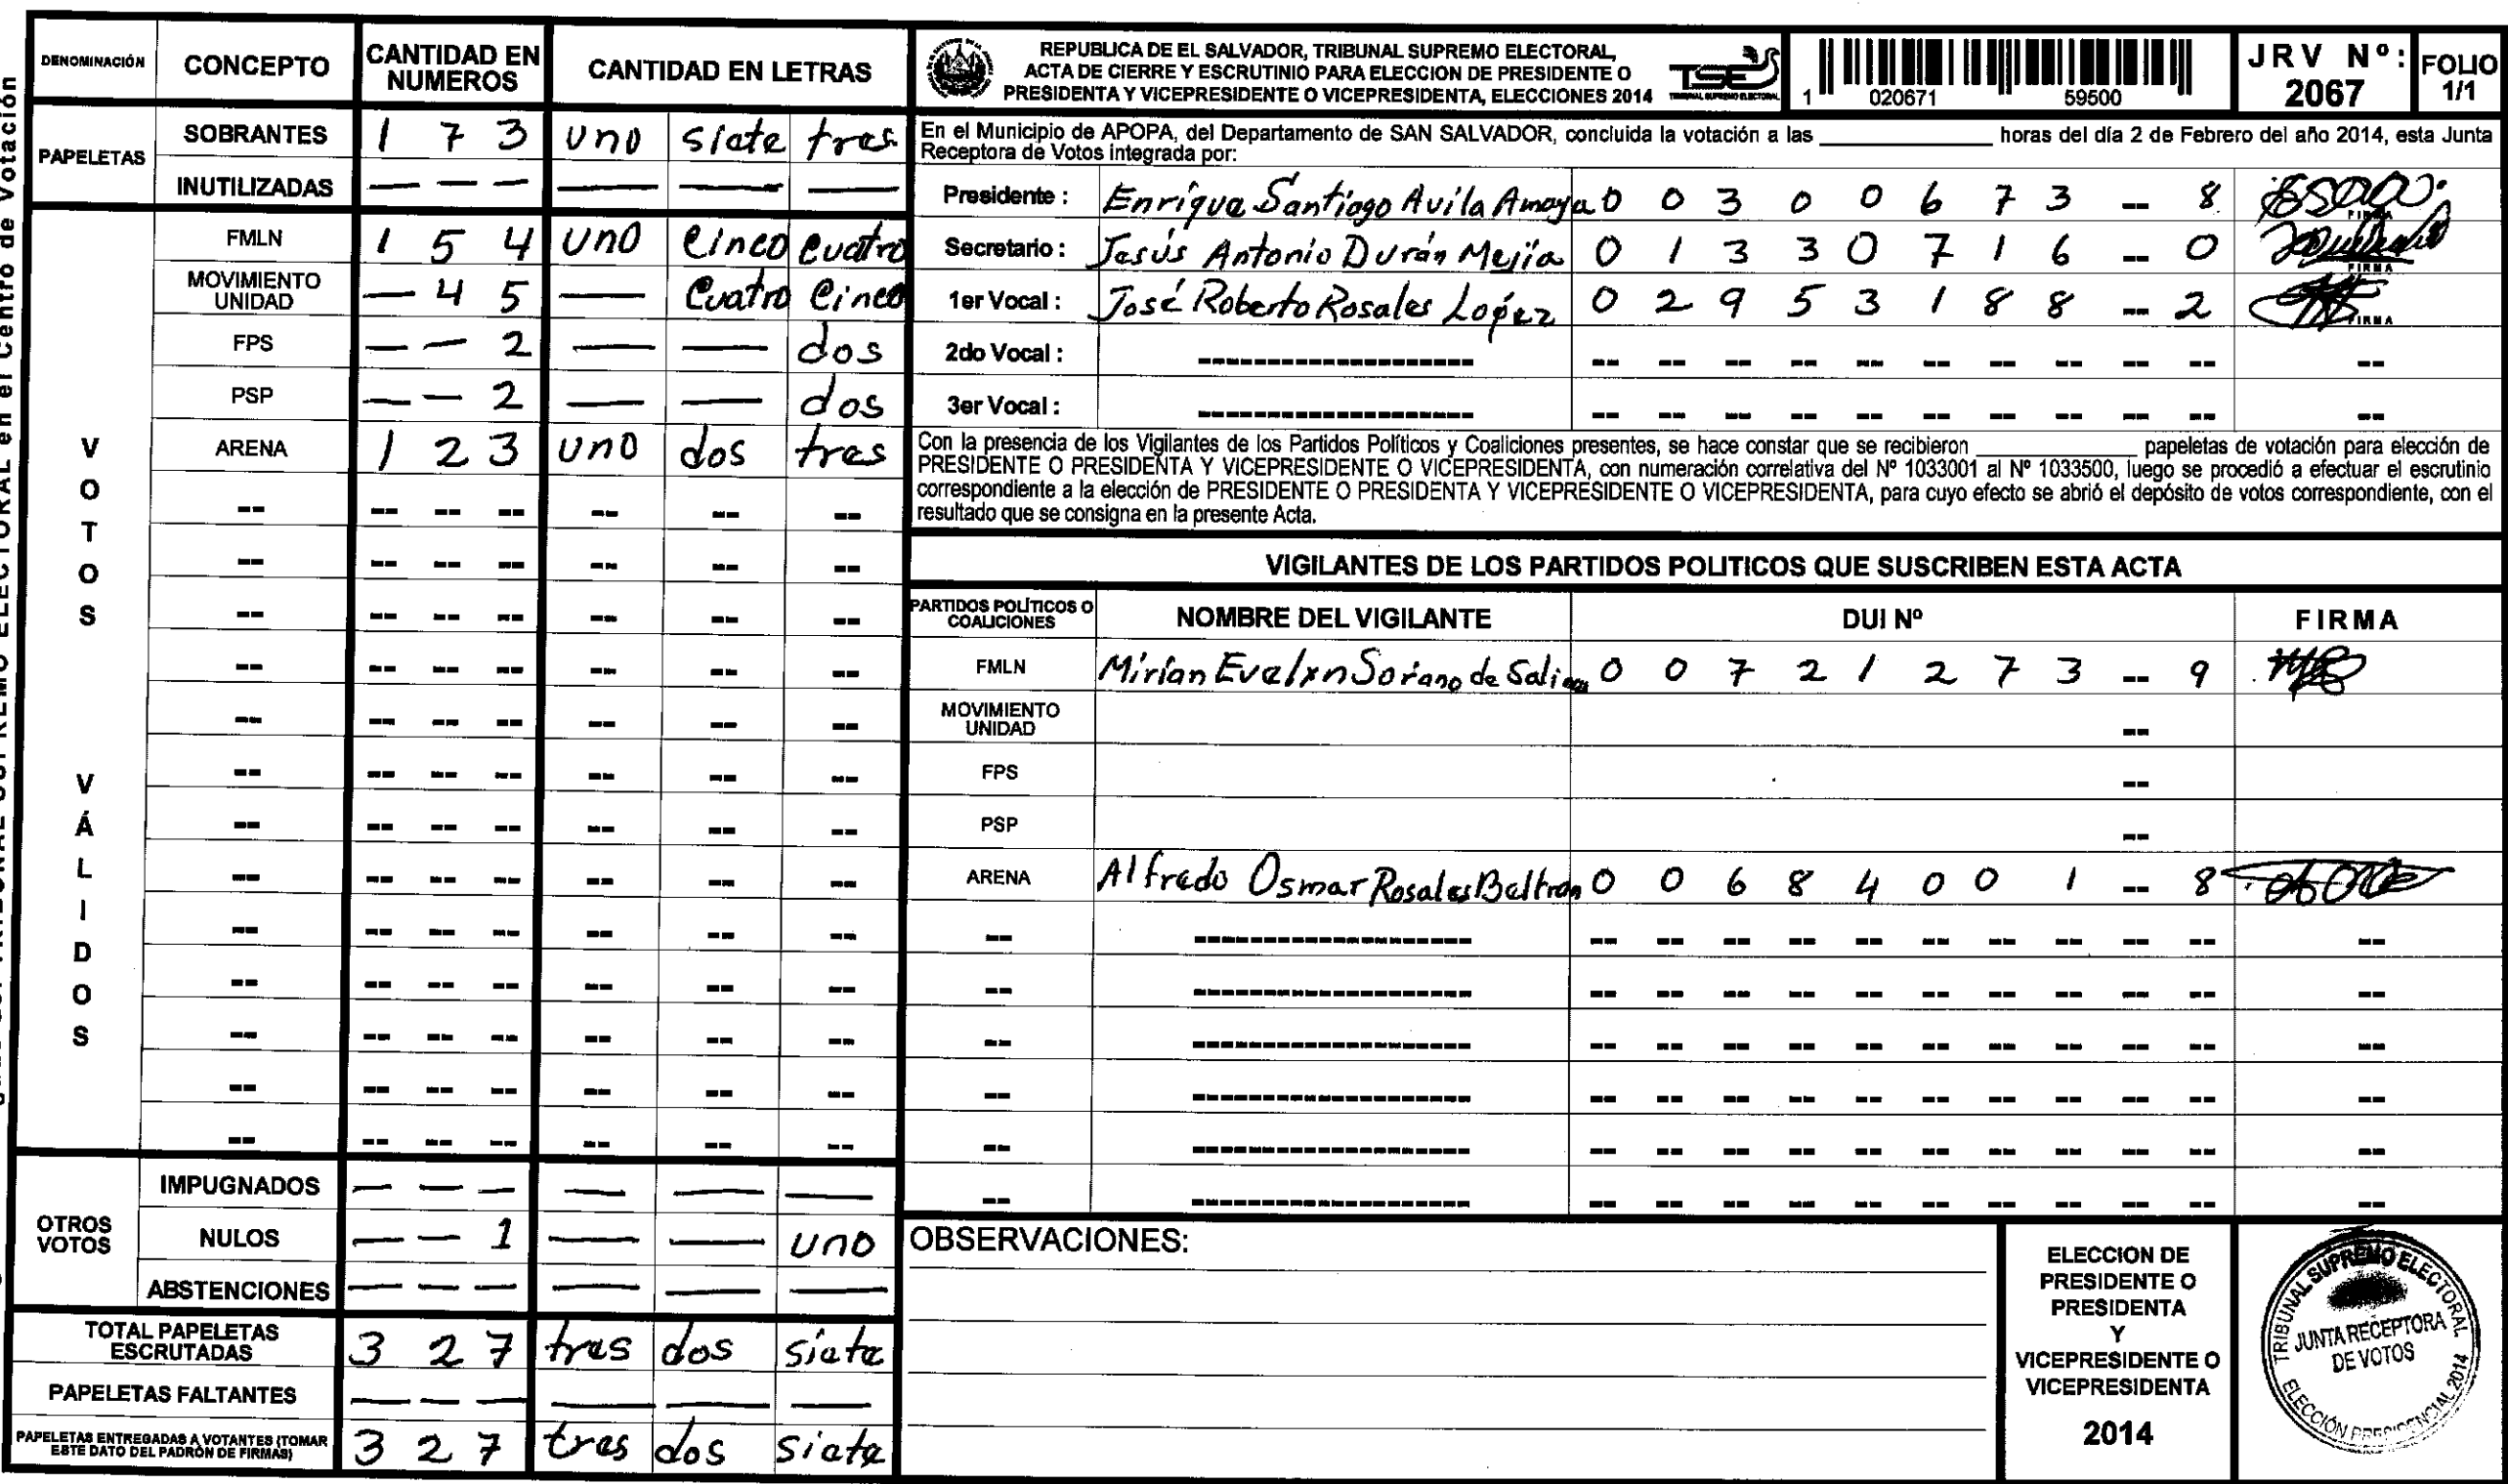 DENOMINACIÓN CONCEPTO CANTIDAD EN NUMEROS CANTIDAD EN LETRAS
PAPELETAS
SOBRANTES 1 7 3 uno siete tres
INUTILIZADAS — — — — — —
VOTOS VÁLIDOS
FMLN 1 5 4 uno cinco cuatro
MOVIMIENTO UNIDAD — 4 5 — cuatro cinco
FPS — — 2 — — dos
PSP — — 2 — — dos
ARENA 1 2 3 uno dos tres
-- -- -- -- -- -- --
-- -- -- -- -- -- --
-- -- -- -- -- -- --
-- -- -- -- -- -- --
-- -- -- -- -- -- --
-- -- -- -- -- -- --
-- -- -- -- -- -- --
-- -- -- -- -- -- --
-- -- -- -- -- -- --
-- -- -- -- -- -- --
-- -- -- -- -- -- --
-- -- -- -- -- -- --
-- -- -- -- -- -- --
OTROS VOTOS
IMPUGNADOS — — — — — —
NULOS — — 1 — — uno
ABSTENCIONES — — — — — —
TOTAL PAPELETAS ESCRUTADAS 3 2 7 tres dos siete
PAPELETAS FALTANTES — — — — — —
PAPELETAS ENTREGADAS A VOTANTES (TOMAR ESTE DATO DEL PADRÓN DE FIRMAS) 3 2 7 tres dos siete
REPUBLICA DE EL SALVADOR, TRIBUNAL SUPREMO ELECTORAL,
ACTA DE CIERRE Y ESCRUTINIO PARA ELECCION DE PRESIDENTE O
PRESIDENTA Y VICEPRESIDENTE O VICEPRESIDENTA, ELECCIONES 2014
TSE
TRIBUNAL SUPREMO ELECTORAL
1 020671 59500
JRV Nº: 2067
FOLIO 1/1
En el Municipio de APOPA, del Departamento de SAN SALVADOR, concluida la votación a las ____________ horas del día 2 de Febrero del año 2014, esta Junta
Receptora de Votos integrada por:
Presidente : Enrique Santiago Avila Amaya 0 0 3 0 0 6 7 3 -- 8 FIRMA
Secretario : Jesús Antonio Durán Mejía 0 1 3 3 0 7 1 6 -- 0 FIRMA
1er Vocal : José Roberto Rosales López 0 2 9 5 3 1 8 8 -- 2 FIRMA
2do Vocal : ------------------ -- -- -- -- -- -- -- -- -- -- --
3er Vocal : ------------------ -- -- -- -- -- -- -- -- -- -- --
Con la presencia de los Vigilantes de los Partidos Políticos y Coaliciones presentes, se hace constar que se recibieron ____________ papeletas de votación para elección de
PRESIDENTE O PRESIDENTA Y VICEPRESIDENTE O VICEPRESIDENTA, con numeración correlativa del Nº 1033001 al Nº 1033500, luego se procedió a efectuar el escrutinio
correspondiente a la elección de PRESIDENTE O PRESIDENTA Y VICEPRESIDENTE O VICEPRESIDENTA, para cuyo efecto se abrió el depósito de votos correspondiente, con el
resultado que se consigna en la presente Acta.
VIGILANTES DE LOS PARTIDOS POLITICOS QUE SUSCRIBEN ESTA ACTA
PARTIDOS POLÍTICOS O COALICIONES NOMBRE DEL VIGILANTE DUI Nº FIRMA
FMLN Mirian Evelxn Sorano de Salinas 0 0 7 2 1 2 7 3 -- 9
MOVIMIENTO UNIDAD --
FPS --
PSP --
ARENA Alfredo Osmar Rosales Beltran 0 0 6 8 4 0 0 1 -- 8
-- ------------------ -- -- -- -- -- -- -- -- -- -- --
-- ------------------ -- -- -- -- -- -- -- -- -- -- --
-- ------------------ -- -- -- -- -- -- -- -- -- -- --
-- ------------------ -- -- -- -- -- -- -- -- -- -- --
-- ------------------ -- -- -- -- -- -- -- -- -- -- --
-- ------------------ -- -- -- -- -- -- -- -- -- -- --
OBSERVACIONES:
ELECCION DE
PRESIDENTE O
PRESIDENTA
Y
VICEPRESIDENTE O
VICEPRESIDENTA
2014
TRIBUNAL SUPREMO ELECTORAL
JUNTA RECEPTORA
DE VOTOS
ELECCIÓN PRESIDENCIAL 2014
ELECTORAL en el Centro de Votación